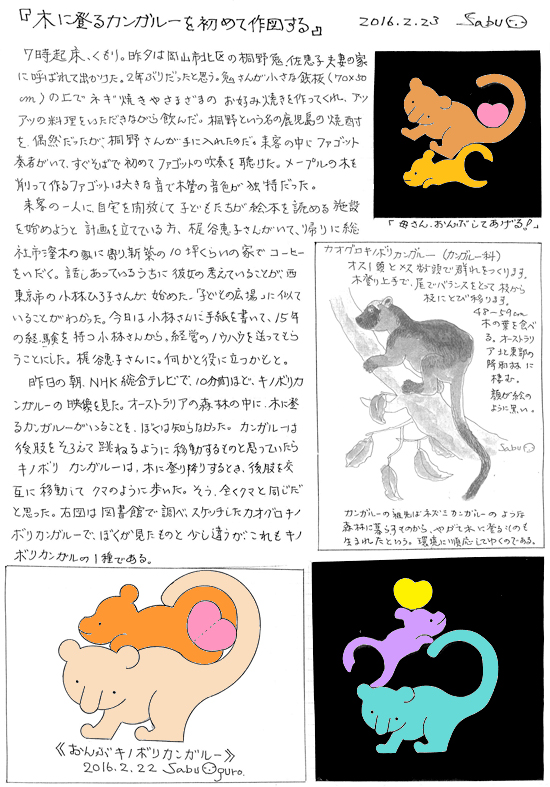 『木に登るカンガルーを初めて作図する』 2016.2.23 Sabu
7時起床、くもり。昨夕は岡山市北区の桐野勉、佐恵子夫妻の家
に呼ばれて出かけた。2年ぶりだったと思う。勉さんが小さな鉄板(70×50
cm)の上でネギ焼きやさまざまの お好み焼きを作ってくれ、アツ
アツの料理をいただきながら飲んだ。桐野という名の鹿児島の焼酎
を、偶然だったが、桐野さんが手に入れたのだ。来客の中にファゴット
奏者がいて、すぐそばで初めてファゴットの吹奏を聴けた。メープルの木を
削って作るファゴットは大きな音で木管の音色が独特だった。
来客の一人に、自宅を開放して子どもたちが絵本を読める施設
を始めようと計画を立てている方、梶谷恵子さんがいて、帰りに総
社市清木の家に寄り、新築の10坪くらいの家でコーヒー
をいただく。話しあっているうちに彼女の考えていることが、西
東京市の小林ひろ子さんが始めた、「子どもの広場」に似て
いることがわかった。今日は小林さんに手紙を書いて、15年
の経験を持つ小林さんから、経営のノウハウを送ってもら
うことにした。梶谷恵子さんに。何かと役に立つかと。
昨日の朝、NHK総合テレビで、10分間ほど、キノボリカ
ンガルーの映像を見た。オーストラリアの森林の中に、木に登
るカンガルーがいることを、ぼくは知らなかった。カンガルーは
後肢をそろえて跳ねるように移動するものと思っていたら
キノボリ カンガルーは、木に登り降りするとき、後肢を交
互に移動してクマのように歩いた。そう、全くクマと同じだ
と思った。右図は図書館で調べ、スケッチしたカオグロキノ
ボリカンガルーで、ぼくが見たものと少し違うがこれもキノ
ボリカンガルの1種である。
「母さん、おんぶしてあげる!」
カオグロキノボリカンガルー (カンガルー科)
オス1頭とメス数頭で群れをつくります。
木登り上手で、尾でバランスをとって枝から
枝にとび移ります。
48~59cm
木の葉を食べ
る。オーストラリ
ア北東部の
降雨林に
棲む。
顔が絵の
ように黒い。
Sabu
カンガルーの祖先はネズミカンガルーのような
森林に暮らすものから、やがて木に登るものも
生まれたという。環境に順応してゆくのである。
《おんぶキノボリカンガルー》
2016.2.22 Sabu Oguro.